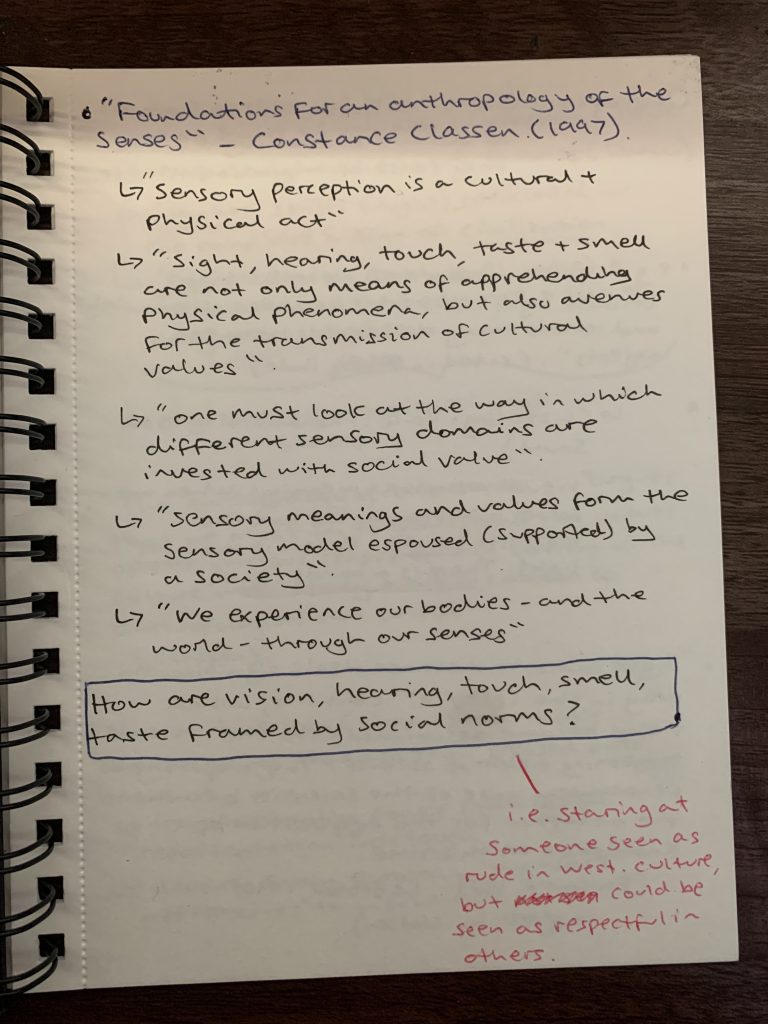 • "Foundations for an anthropology of the
senses" - Constance Classen. (1997).
↳ "Sensory perception is a cultural +
physical act"
↳ "Sight, hearing, touch, taste + smell
are not only means of apprehending
physical phenomena, but also avenues
for the transmission of cultural
values".
↳ "one must look at the way in which
different sensory domains are
invested with social value".
↳ "sensory meanings and values form the
sensory model espoused (supported) by
a society".
↳ "We experience our bodies - and the
world - through our senses"
How are vision, hearing, touch, smell,
taste framed by social norms?
i.e. staring at
someone seen as
rude in west. culture,
but could be
seen as respectful in
others.